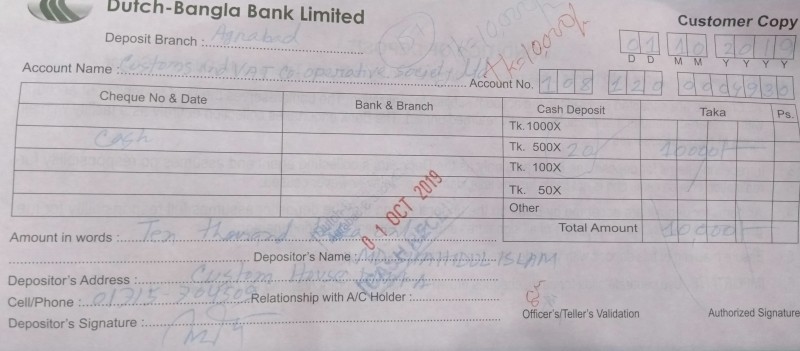 Dutch-Bangla Bank Limited
Customer Copy
Deposit Branch : Agrabad
Tk 10,000/-
01 10 2019
D D M M Y Y Y Y
Account Name : Customs and VAT Co-operative Society Ltd
Account No. 108 120
Cheque No & Date Bank & Branch Cash Deposit Taka Ps.
Tk. 1000X
Cash Tk. 500X 20/ 10000/-
Tk. 100X
Tk. 50X
Other
01 OCT 2019
Total Amount 10,000/-
Amount in words : Ten thousand
Depositor's Name : ISLAM
Depositor's Address : Custom House
Cell/Phone : 01715- Relationship with A/C Holder :
Depositor's Signature :
Officer's/Teller's Validation Authorized Signature